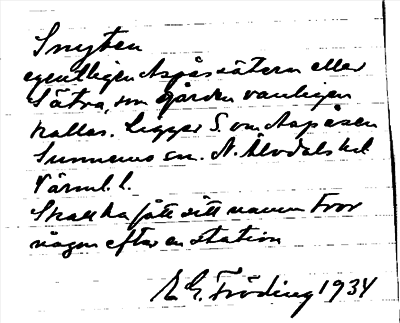 Snyten
egentligen Aspåssätern eller
Sätra, som gården vanligen
kallas. Ligger S. om Aspåsen
Sunnemo sn. N. Älvdals hd.
Värml. l.
Skall ha fått sitt namn
någon efter en station
E. G. Fröding 1934